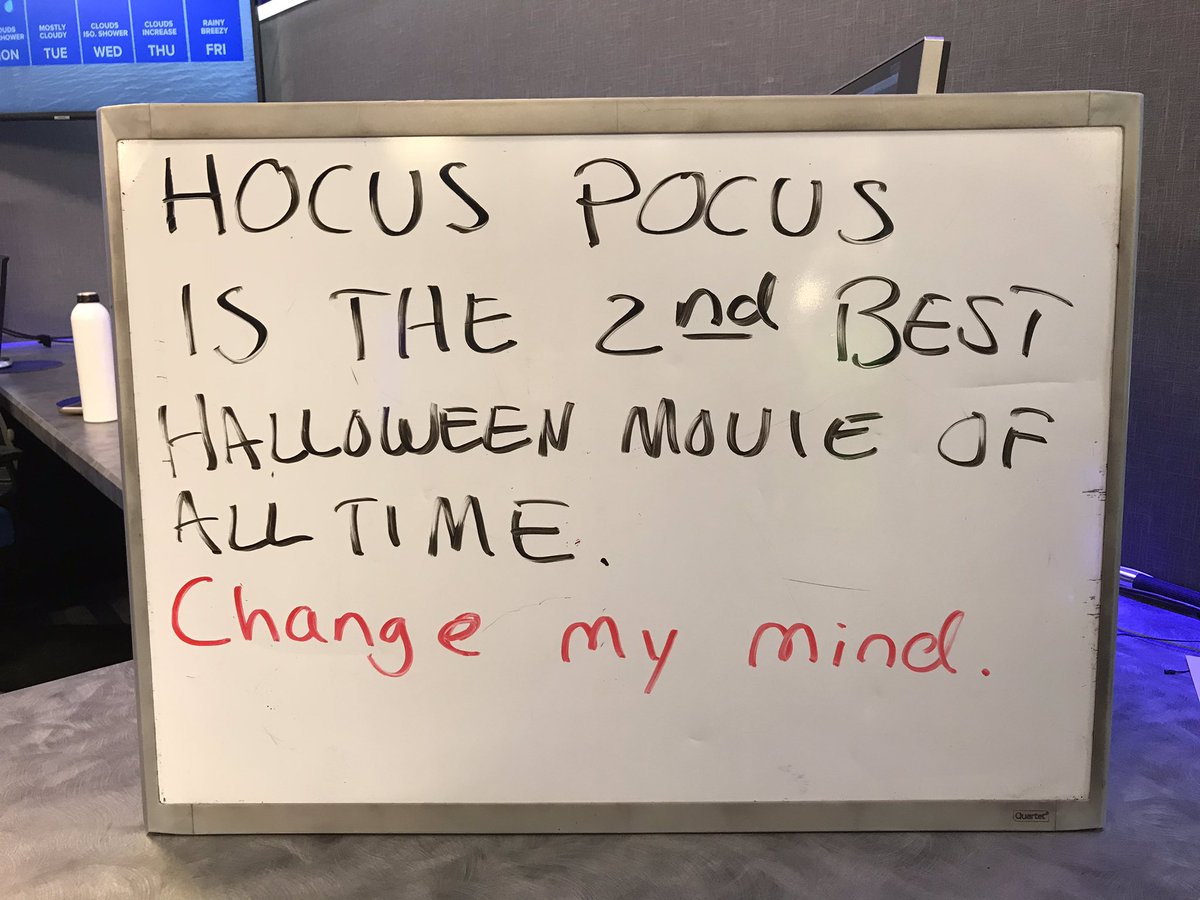 OUDS
HOWER
MON
MOSTLY
CLOUDY
TUE
CLOUDS
ISO. SHOWER
WED
CLOUDS
INCREASE
THU
RAINY
BREEZY
FRI
HOCUS POCUS
IS THE 2nd BEST
HALLOWEEN MOVIE OF
ALL TIME.
Change my mind.
Quartet